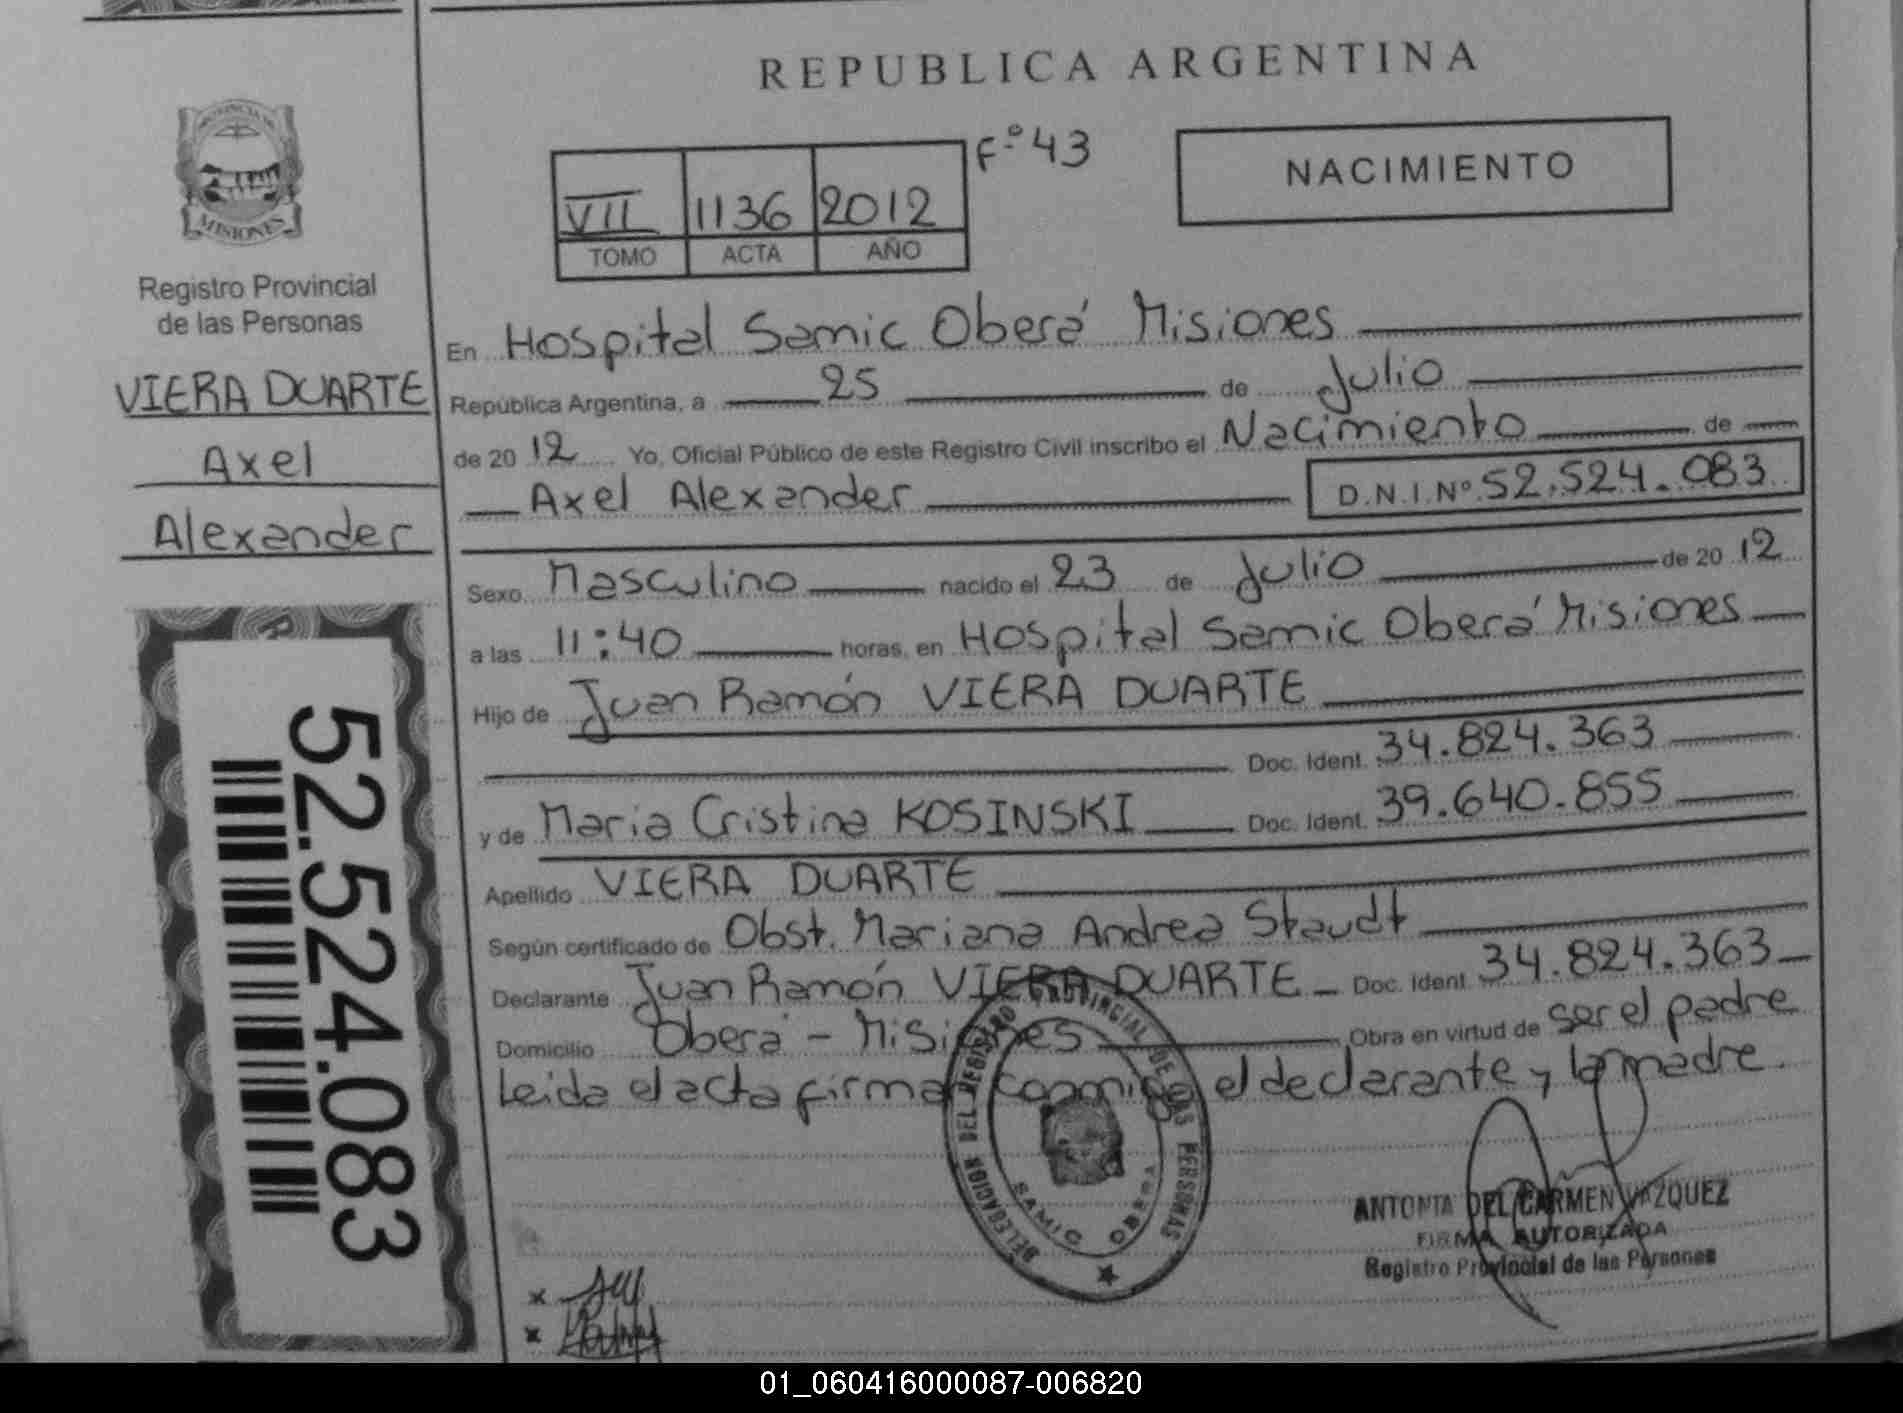 REPUBLICA ARGENTINA
PROVINCIA DE
MISIONES
Registro Provincial
de las Personas
VIERA DUARTE
Axel
Alexander
52.524.083
VII 1136 2012 Fº 43
TOMO ACTA AÑO
NACIMIENTO
En Hospital Samic Oberá Misiones
República Argentina, a 25 de Julio
de 20 12 Yo, Oficial Público de este Registro Civil inscribo el Nacimiento de
Axel Alexander D.N.I.Nº 52.524.083
Sexo Masculino nacido el 23 de Julio de 20 12
a las 11:40 horas, en Hospital Samic Oberá Misiones
Hijo de Juan Ramón VIERA DUARTE
Doc. Ident. 34.824.363
y de Maria Cristina KOSINSKI Doc. Ident. 39.640.855
Apellido VIERA DUARTE
Según certificado de Obst. Mariana Andrea Staudt
Declarante Juan Ramón VIERA DUARTE Doc. Ident. 34.824.363
Domicilio Oberá - Misiones Obra en virtud de ser el padre
Leida el acta firman conmigo el declarante y la madre.
DELEGACION DEL REGISTRO PROVINCIAL DE LAS PERSONAS
SAMIC OBERA
ANTONIA DEL CARMEN VAZQUEZ
FIRMA AUTORIZADA
Registro Provincial de las Personas
x
x
01_060416000087-006820